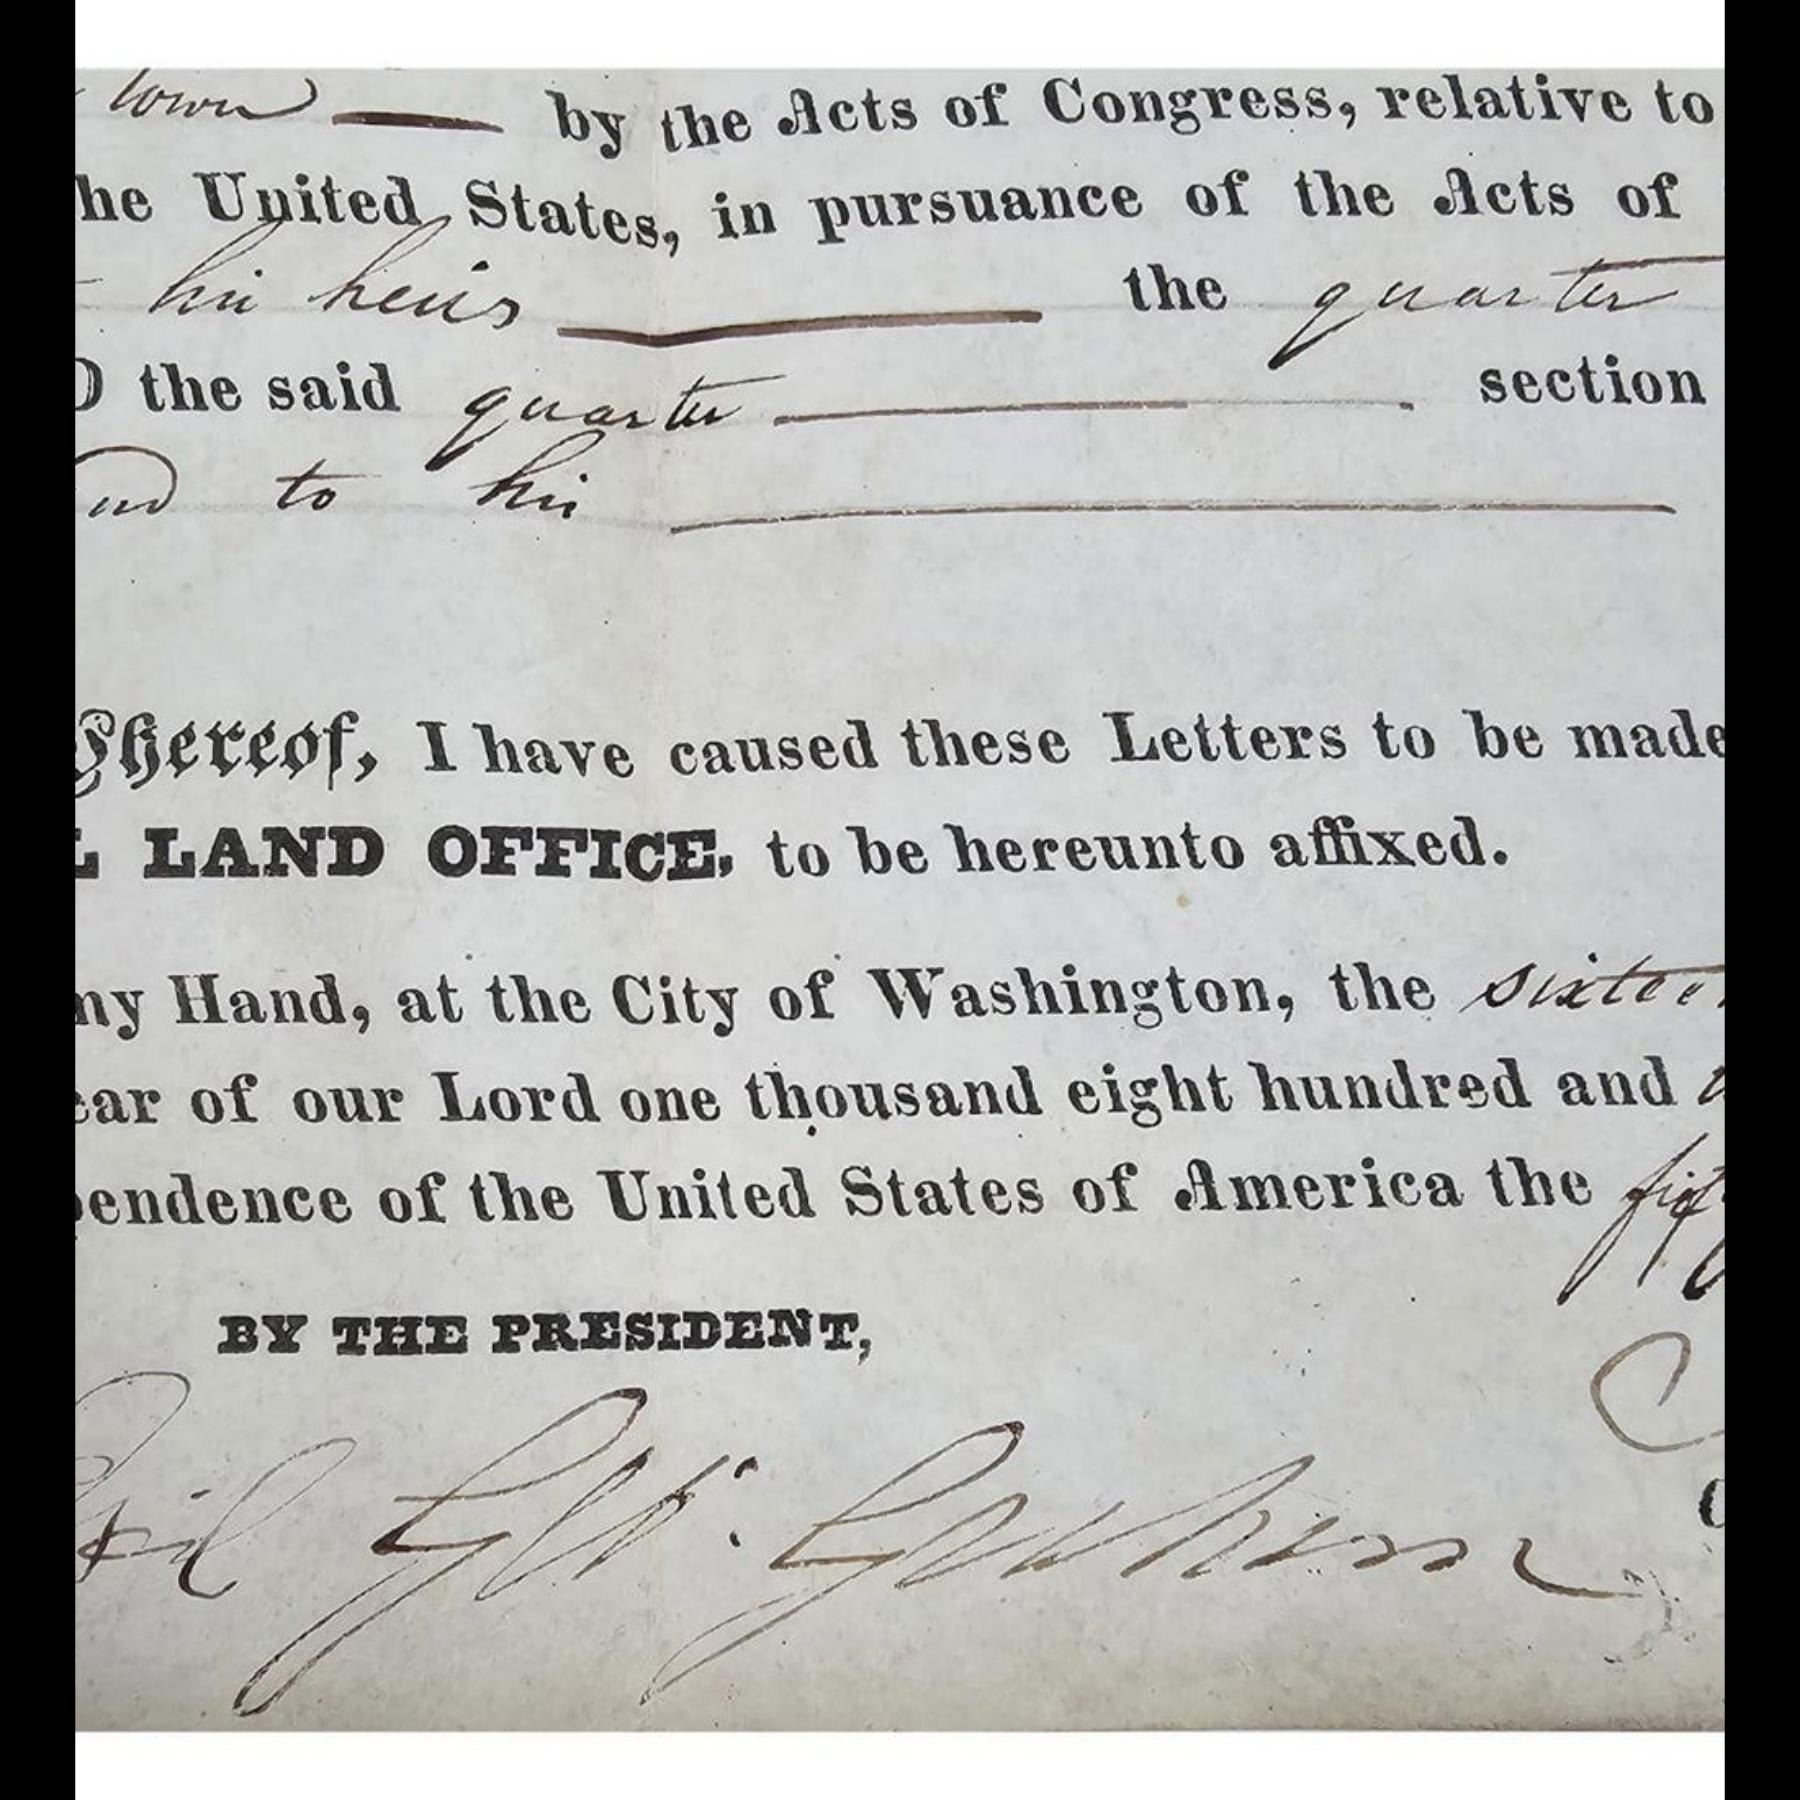 town by the Acts of Congress, relative to
he United States, in pursuance of the Acts of
his heirs the quarter
D the said quarter section
to his
Thereof, I have caused these Letters to be made
L LAND OFFICE, to be hereunto affixed.
my Hand, at the City of Washington, the sixtee
ear of our Lord one thousand eight hundred and
pendence of the United States of America the fift
BY THE PRESIDENT,